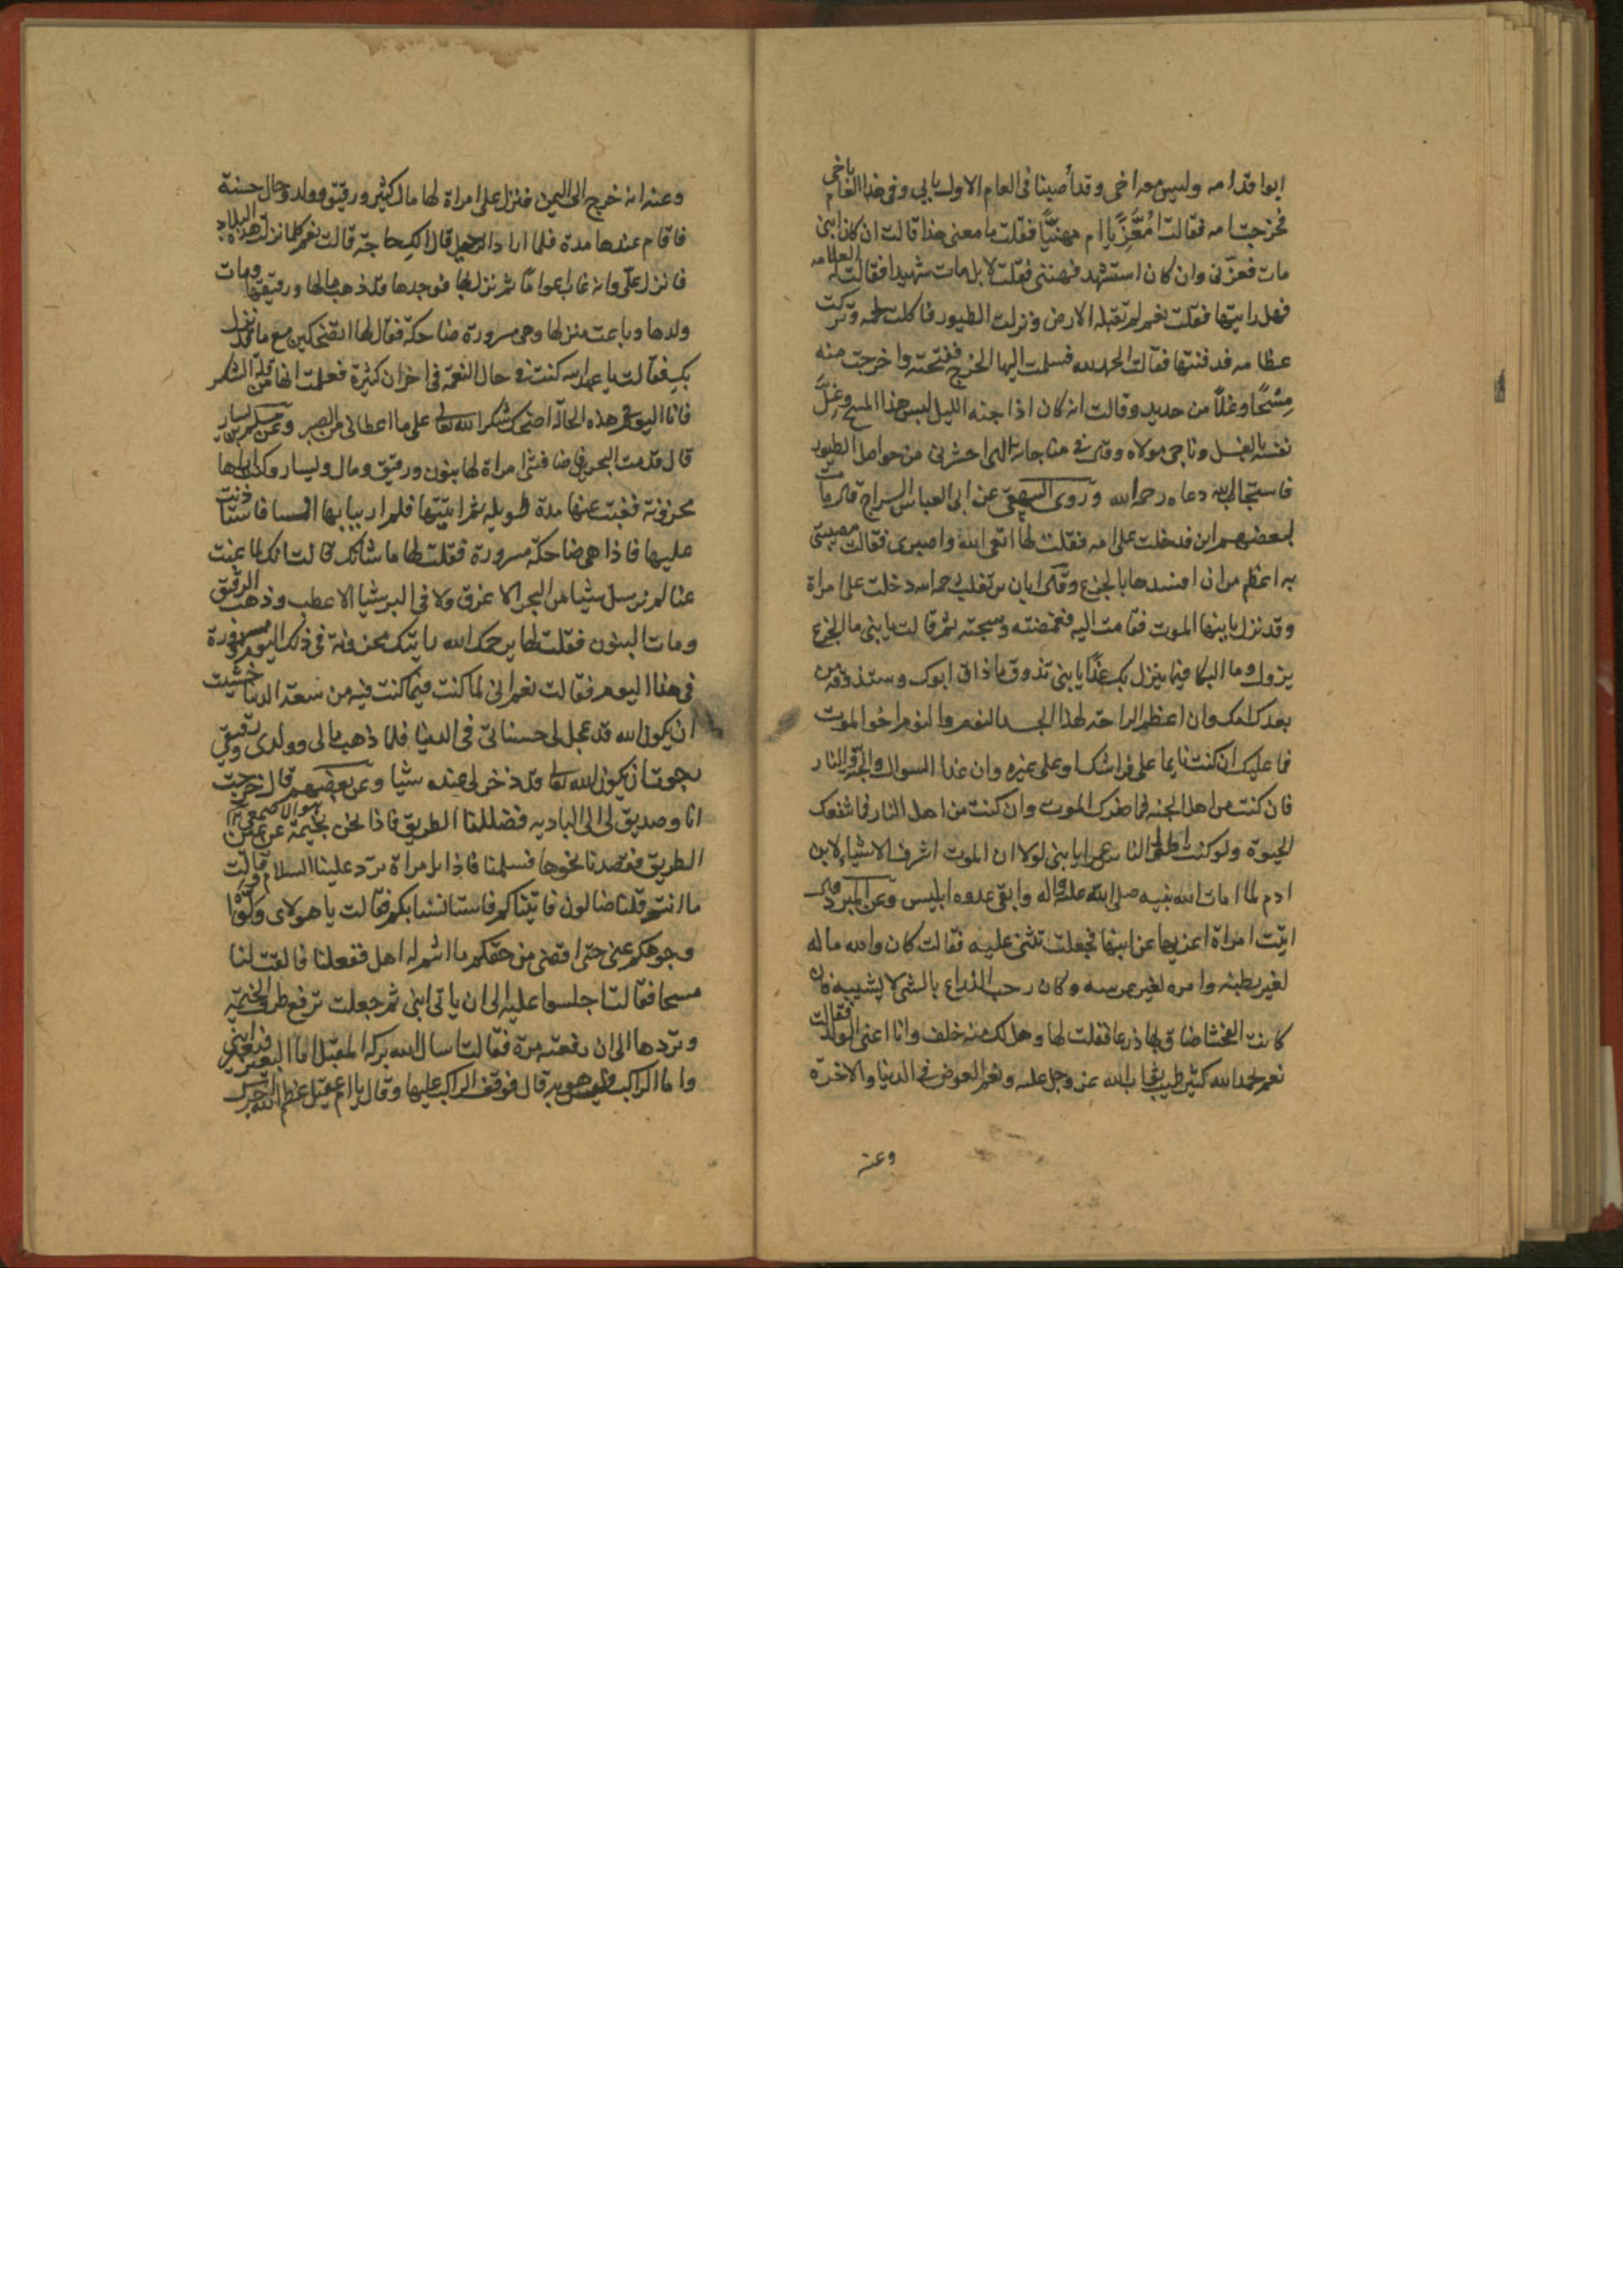 ابوا قدامه وليس معه اخى وقد أصبنا فى العام الاول بابى وفى هذا العام باخى
فخرجت امه فقالت امُعَزِّيًا ام مهنّيًّا فقلت ما معنى هذا قالت ان كان ابنى
مات فعزّنى وان كان استشهد فهننى فقلت لا بل مات شهيدا فقالت له العلامه
فهل رايتها فقلت نعم لم تقبله الارض ونزلت الطيور فاكلت لحمه وتركت
عظامه فدفنتها فقالت الحمد لله فسلمت اليها الخرج ففتحته واخرجت منه
مِسْحًا وغلاً من حديد وقالت انه كان اذا جنه الليل لبس هذا المسح وغلّ
نفسه بالغل وناجى مولاه وقال فى مناجاته الهى احشرنى من حواصل الطيور
فاستجاب الله دعاه رحمه الله وروى البيهقى عن ابى العباس السراج قال مات
لبعضهم ابن فدخلت على امه فقلت لها اتقى الله واصبرى فقالت مصيبتى
به اعظم من ان افسدها بالجزع وقال ابان بن تغلب رحمه الله دخلت على امراة
وقد نزل بابنها الموت فقامت اليه فغمضته وسجته ثم قالت يا بنى ما الجزع
يزول وما البكا فيما ينزل بك غدًا يا بنى تذوق ما ذاق ابوك وستذوقه من
بعدك امك وان اعظم الراحة لهذا الجسد النوم والنوم اخو الموت
فما عليك ان كنت نايما على فراشك او على غيره وان غدا السوال والجنة والنار
فان كنت من اهل الجنة فما ضرك الموت وان كنت من اهل النار فما تنفعك
الحيوة ولو كنت اطول الناس عمرا يا بنى لولا ان الموت اشرف الاشياء لابن
ادم لما امات الله نبيه صلى الله عليه واله وابقى عدوه ابليس وعن المبرد قال
اتيت امراة اعزيها عن ابنها فجعلت تثنى عليه فقالت كان والله ماله
لغير بطنه وامره لغير عرسه وكان رحب الذراع بالتى لا تشينه فان
كانت الفحشا ضاق بها ذرعا فقلت لها وهل لك منه خلف وانا اعنى الولد فقالت
نعم بحمد الله كثير طيب ثواب الله عز وجل عليه ونعم العوض فى الدنيا والاخرة
وعنه
وعنه انه خرج الى اليمن فنزل على امراة لها مال كثير ورقيق وولد وحال حسنة
فاقام عندها مدة فلما اراد الرحيل قال الك حاجة قالت نعم كلما نزلت هذه البلاد
فانزل علىّ وانه غاب اعواما ثم نزل بها فوجدها قد ذهب مالها ورقيقها ومات
ولدها وباعت منزلها وهى مسرورة ضاحكة فقال لها اتضحكين مع ما قد نزل
بك فقالت يا عبد الله كنت فى حال النعمة فى احزان كثيرة فعلمت انها من قلة الشكر
فانا اليوم فى هذه الحالة اضحك شكرا لله تعالى على ما اعطانى من الصبر وعن مسلم بن يسار
قال قدمت البحرين فاضافتنى امراة لها بنون ورقيق ومال ويسار وكنت اراها
محزونة فغبت عنها مدة طويلة ثم اتيتها فلم ار ببابها انسا فاستاذنت
عليها فاذا هى ضاحكة مسرورة فقلت لها ما شانك قالت انك لما غبت
عنا لم نرسل شيا من البحر الا غرق ولا فى البر شيا الا عطب وذهب الرقيق
ومات البنون فقلت لها يرحمك الله رايتك محزونة فى ذلك اليوم ومسرورة
فى هذا اليوم فقالت نعم انى لما كنت فيما كنت فيه من سعة الدنيا خشيت
ان يكون الله قد عجل لى حسناتى فى الدنيا فلما ذهب مالى وولدى ورقيقى
رجوت ان يكون الله تعالى قد ذخر لى عنده شيا وعن بعضهم قال خرجت
هو الاصمعى
انا وصديق لى الى البادية فضللنا الطريق فاذا نحن بخيمة عن يمين
الطريق فقصدنا نحوها فسلمنا فاذا بامراة ترد علينا السلام وقالت
ما انتم قلنا ضالون فاتيناكم فاستانسنا بكم فقالت يا هولاى ولّوا
وجوهكم عنى حتى اقضى من حقكم ما انتم له اهل ففعلنا فالقت لنا
مسحا فقالت اجلسوا عليه الى ان ياتى ابنى ثم جعلت ترفع طرف الخيمة
وتردها الى ان رفعته مرة فقالت اسال الله بركة المقبل اما البعير فبعير ابنى
واما الراكب فليس هو به قال فوقف الراكب عليها وقال يا ام عقيل عظم الله اجرك